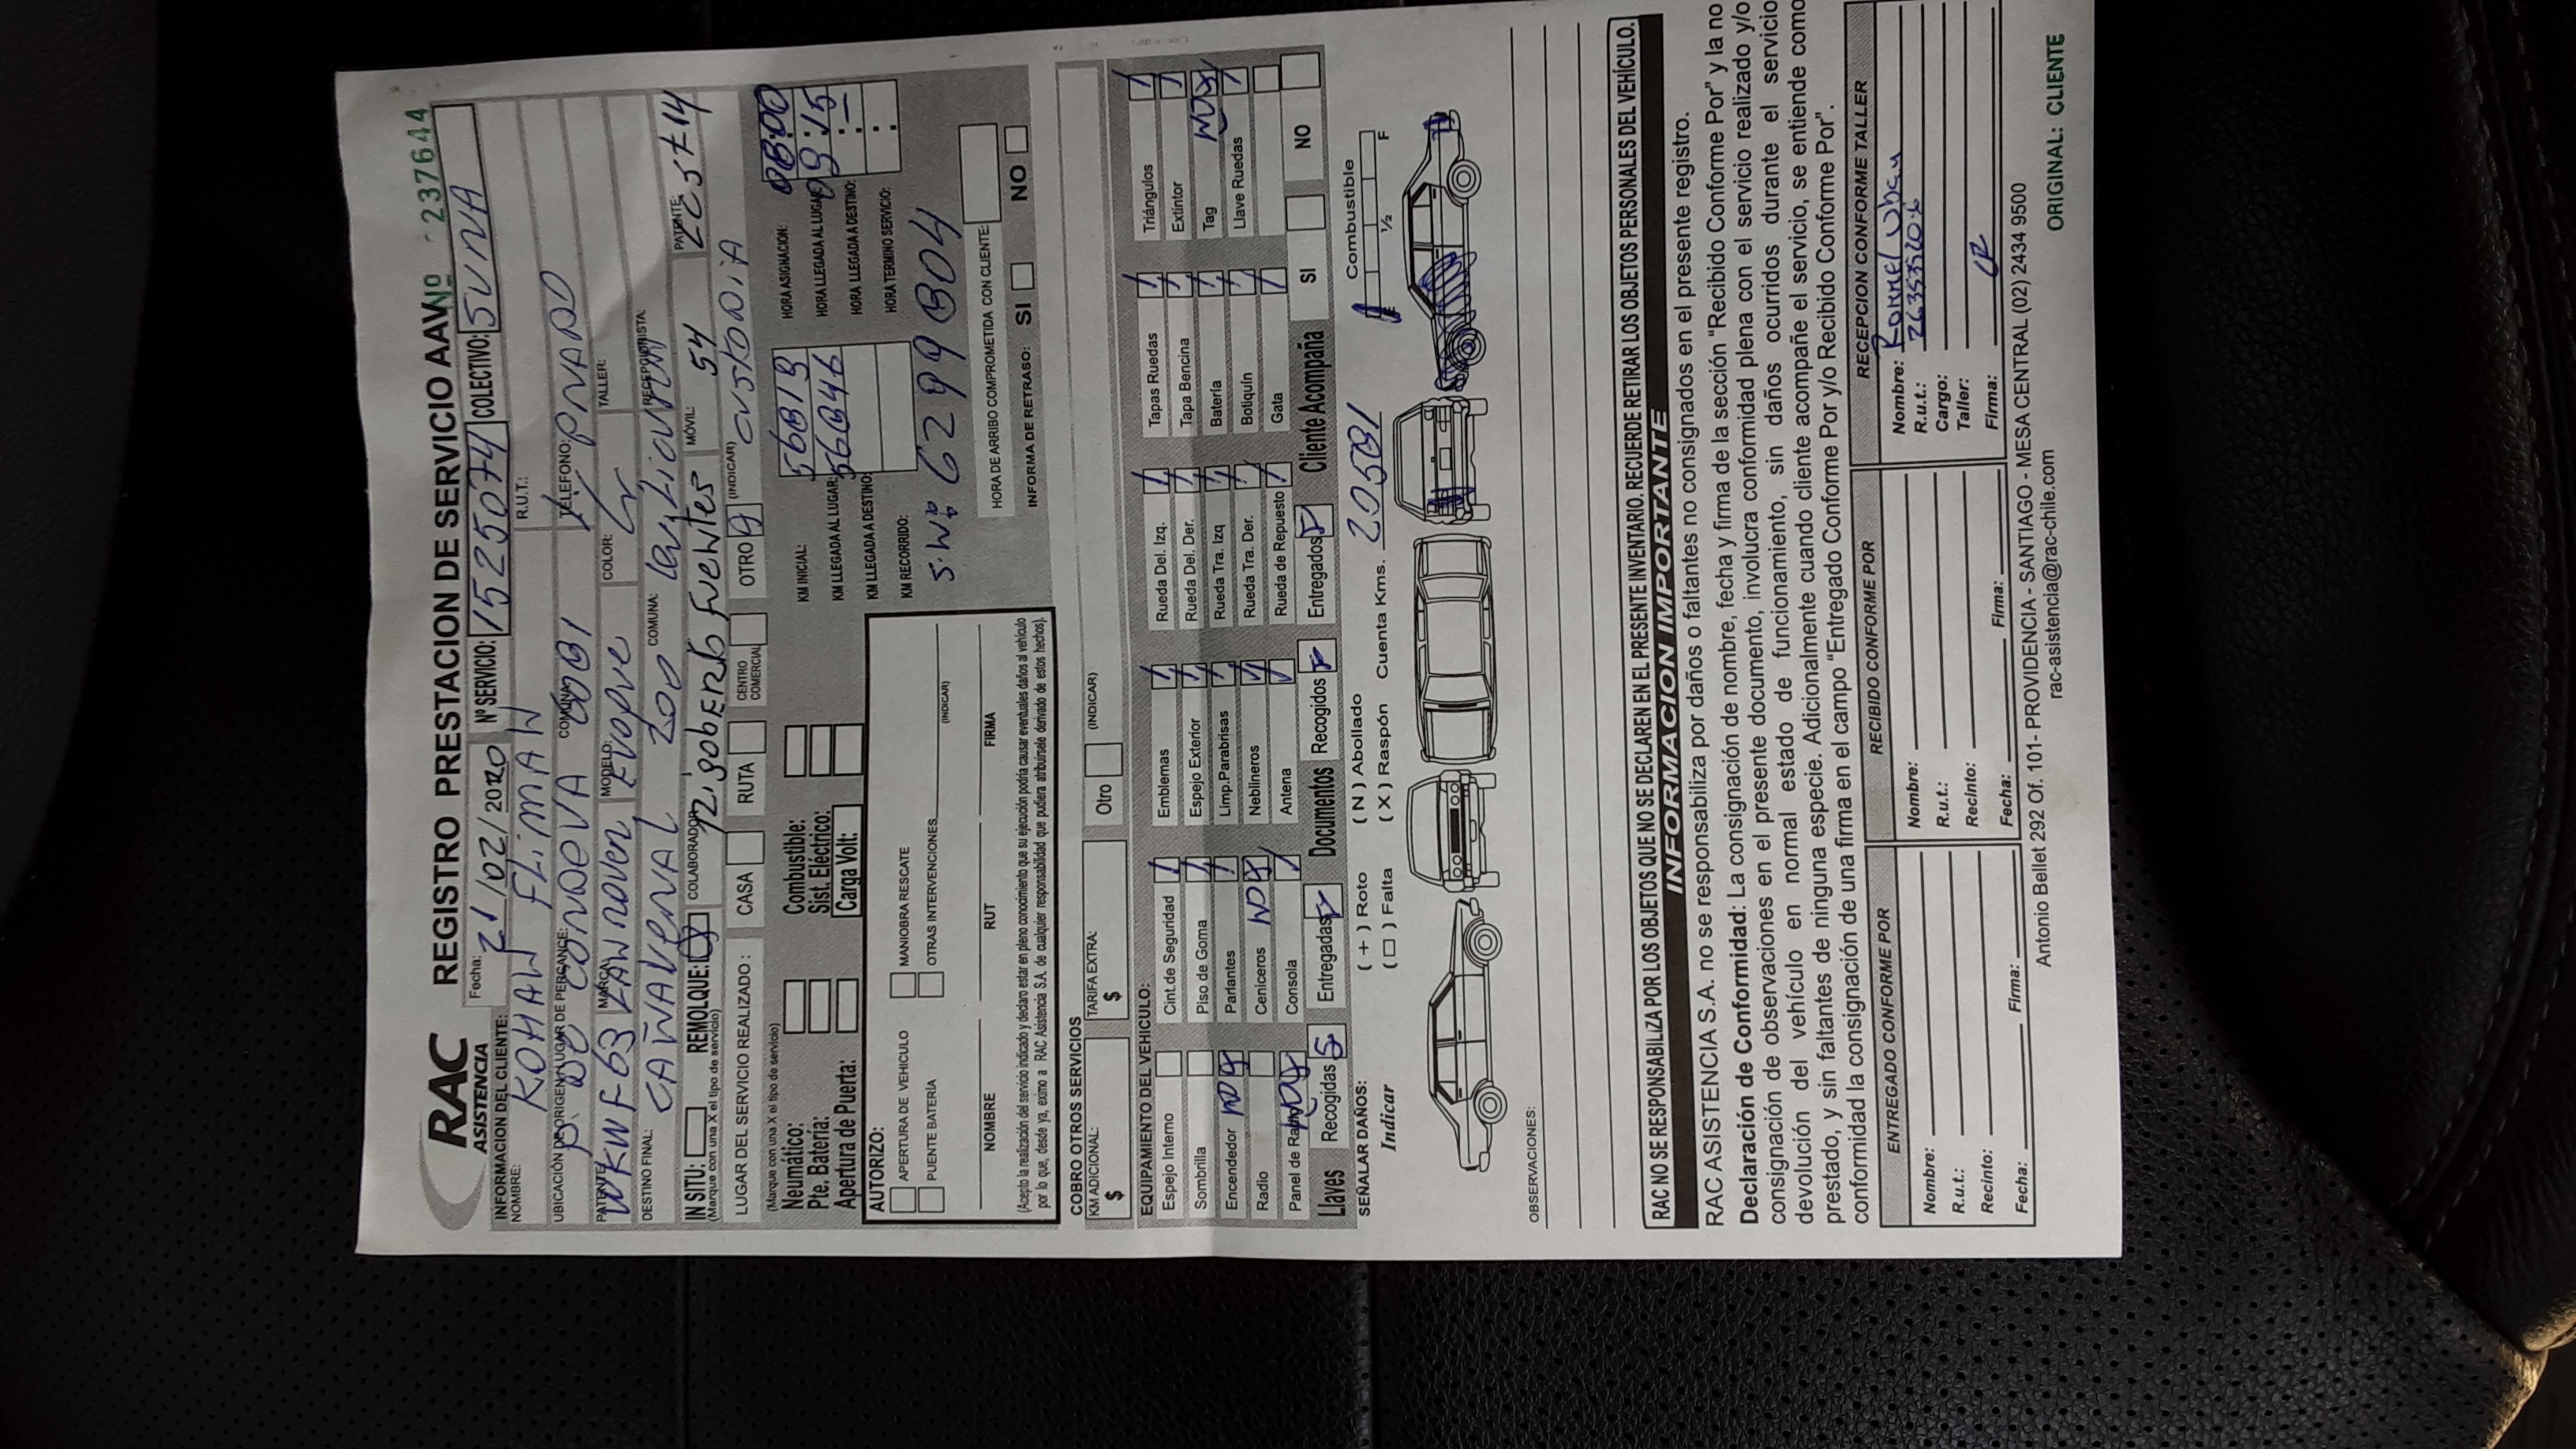 RAC
ASISTENCIA
REGISTRO PRESTACION DE SERVICIO AAV Nº - 237644
Fecha: 21/02/2020 Nº SERVICIO: 15255074 COLECTIVO: SUNA
INFORMACION DEL CLIENTE:
NOMBRE: KOHAN FLIMAN R.U.T.:
UBICACIÓN DE ORIGEN/LUGAR DE PERCANCE: COMUNA: TELEFONO:
PATENTE: MARCA: MODELO: COLOR: TALLER:
DESTINO FINAL: CAÑAVERAL 200 COMUNA: RECEPCIONISTA:
IN SITU: REMOLQUE: COLABORADOR: MÓVIL: 54 PATENTE:
(Marque con una X el tipo de servicio)
LUGAR DEL SERVICIO REALIZADO : CASA RUTA CENTRO COMERCIAL OTRO (INDICAR) CUSTODIA
(Marque con una X el tipo de servicio)
Neumático: Combustible: KM INICIAL: 56813 HORA ASIGNACION: 08:00
Pte. Batería: Sist. Eléctrico: KM LLEGADA AL LUGAR: HORA LLEGADA AL LUGAR: 09:15
Apertura de Puerta: Carga Volt: KM LLEGADA A DESTINO: HORA LLEGADA A DESTINO:
KM RECORRIDO: HORA TERMINO SERVICIO:
AUTORIZO:
APERTURA DE VEHICULO MANIOBRA RESCATE
PUENTE BATERÍA OTRAS INTERVENCIONES (INDICAR)
NOMBRE RUT FIRMA
(Acepto la realización del servicio indicado y declaro estar en pleno conocimiento que su ejecución podría causar eventuales daños al vehículo
por lo que, desde ya, eximo a RAC Asistencia S.A. de cualquier responsabilidad que pudiera atribuírsele derivado de estos hechos).
6299804
HORA DE ARRIBO COMPROMETIDA CON CLIENTE:
INFORMA DE RETRASO: SI NO
COBRO OTROS SERVICIOS
KM ADICIONAL: $ TARIFA EXTRA: $ Otro (INDICAR)
EQUIPAMIENTO DEL VEHICULO:
Espejo Interno Cint.de Seguridad Emblemas Rueda Del. Izq. Tapas Ruedas Triángulos
Sombrilla Piso de Goma Espejo Exterior Rueda Del. Der. Tapa Bencina Extintor
Encendedor Parlantes Limp.Parabrisas Rueda Tra. Izq Batería Tag
Radio Ceniceros Neblineros Rueda Tra. Der. Botiquín Llave Ruedas
Panel de Radio Consola Antena Rueda de Repuesto Gata
Llaves Recogidas Entregadas Documentos Recogidos Entregados Cliente Acompaña SI NO
SEÑALAR DAÑOS: ( + ) Roto ( N ) Abollado Combustible
Indicar ( □ ) Falta ( X ) Raspón Cuenta Kms. 20581 E ½ F
OBSERVACIONES:
RAC NO SE RESPONSABILIZA POR LOS OBJETOS QUE NO SE DECLAREN EN EL PRESENTE INVENTARIO. RECUERDE RETIRAR LOS OBJETOS PERSONALES DEL VEHÍCULO.
INFORMACION IMPORTANTE
RAC ASISTENCIA S.A. no se responsabiliza por daños o faltantes no consignados en el presente registro.
Declaración de Conformidad: La consignación de nombre, fecha y firma de la sección "Recibido Conforme Por" y la no
consignación de observaciones en el presente documento, involucra conformidad plena con el servicio realizado y/o
devolución del vehículo en normal estado de funcionamiento, sin daños ocurridos durante el servicio
prestado, y sin faltantes de ninguna especie. Adicionalmente cuando cliente acompañe el servicio, se entiende como
conformidad la consignación de una firma en el campo "Entregado Conforme Por y/o Recibido Conforme Por".
ENTREGADO CONFORME POR RECIBIDO CONFORME POR RECEPCION CONFORME TALLER
Nombre: Nombre: Nombre:
R.u.t.: R.u.t.: R.u.t.:
Recinto: Recinto: Cargo:
Taller:
Fecha: Firma: Fecha: Firma: Firma:
Antonio Bellet 292 Of. 101- PROVIDENCIA - SANTIAGO - MESA CENTRAL (02) 2434 9500
rac-asistencia@rac-chile.com
ORIGINAL: CLIENTE